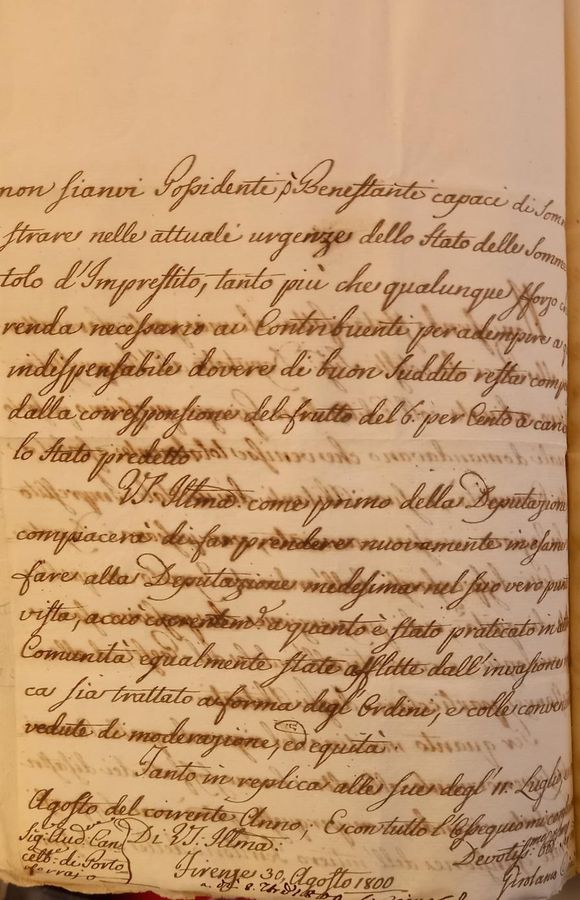 non sianvi Possidenti, ò Benestanti capaci di Som
strare nelle attuali urgenze dello Stato delle Somme
tolo d'Imprestito, tanto più che qualunque sforzo
renda necessario ai Contribuenti per adempire a
indispensabile dovere di buon Suddito resta comp
dalla corresponsione del frutto del 6. per Cento a cari
lo Stato predetto
VS. Illma: come primo della Deputazione
compiacerà di far prendere nuovamente in esame
fare alla Deputazione medesima nel suo vero pun
vista, acciò coerentem.e a quanto è stato praticato in
Comunità egualmente state afflitte dall'invasione
ca sia trattato a forma degl'Ordini, e colle conven
vedute di moderazione, ed equità
Tanto in replica alle sue degl'11. Luglio, e
Agosto del corrente Anno; E con tutto l'Ossequio mi con
Di VS. Illma:
Sig: Aud.re Can
cell.e di Porto
ferrajo
Devotiss.mo
Firenze 30. Agosto 1800
Girolamo